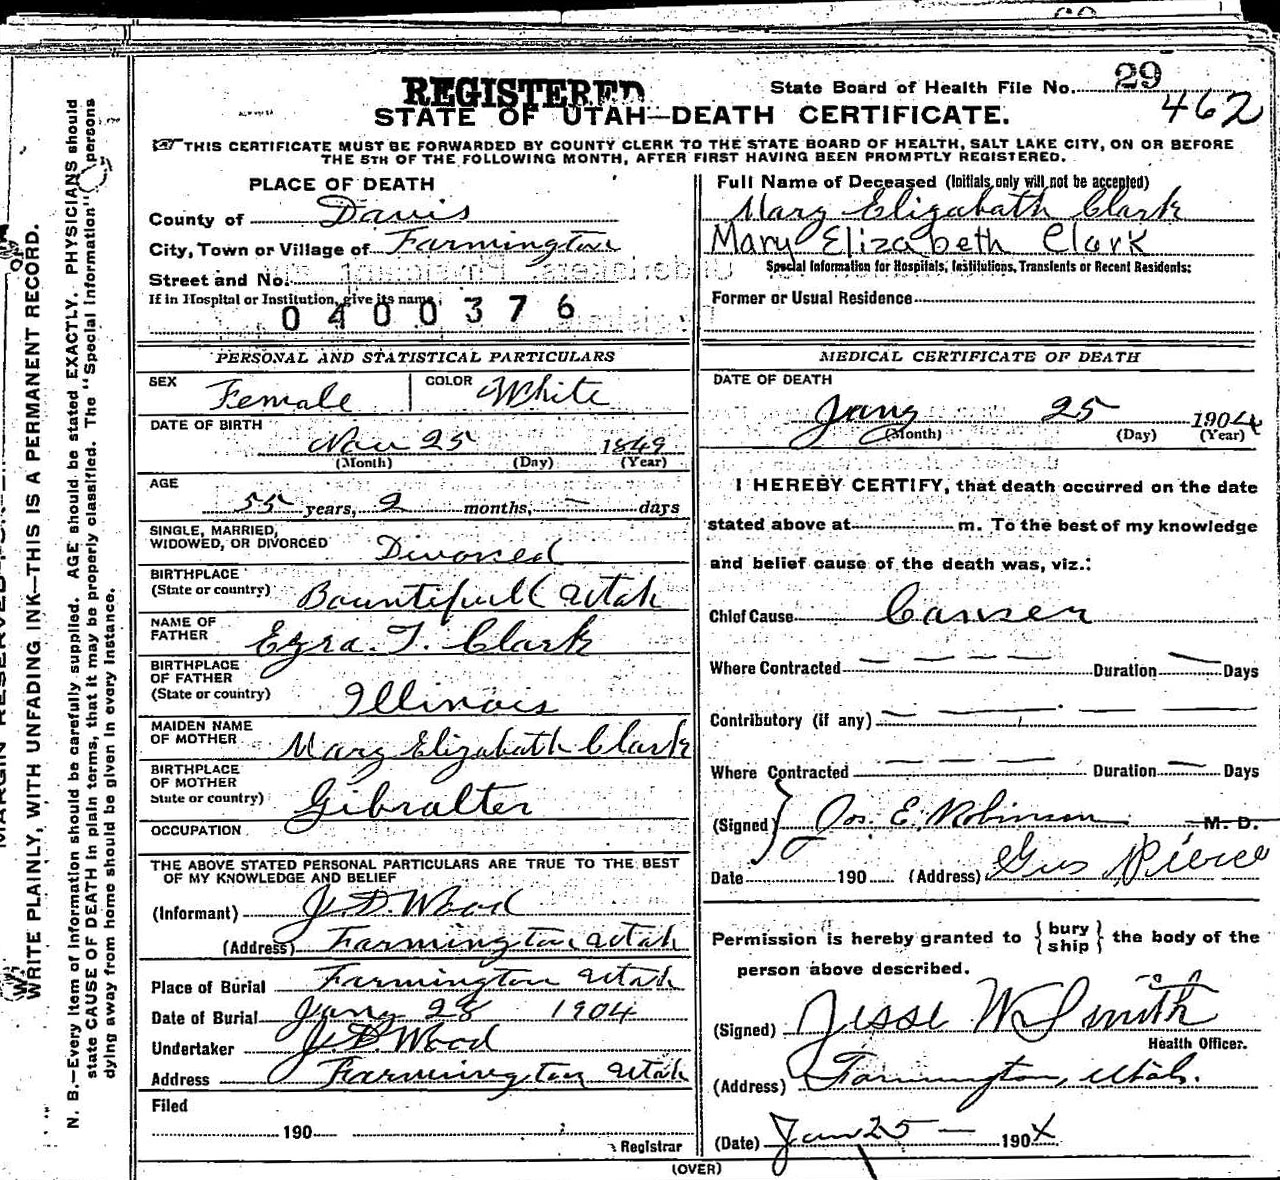 REGISTERED
State Board of Health File No. 29
462
STATE OF UTAH—DEATH CERTIFICATE.
THIS CERTIFICATE MUST BE FORWARDED BY COUNTY CLERK TO THE STATE BOARD OF HEALTH, SALT LAKE CITY, ON OR BEFORE
THE 5TH OF THE FOLLOWING MONTH, AFTER FIRST HAVING BEEN PROMPTLY REGISTERED.
PLACE OF DEATH
County of Davis
City, Town or Village of Farmington
Street and No.
If in Hospital or Institution, give its name
0400376
Full Name of Deceased (Initials only will not be accepted)
Mary Elizabath Clark
Mary Elizabeth Clark
Special Information for Hospitals, Institutions, Transients or Recent Residents:
Former or Usual Residence
PERSONAL AND STATISTICAL PARTICULARS
SEX Female
COLOR White
DATE OF BIRTH
Nov 25 1849
(Month) (Day) (Year)
AGE
55 years, 2 months, — days
SINGLE, MARRIED,
WIDOWED, OR DIVORCED Divorsed
BIRTHPLACE
(State or country) Bountifull Utah
NAME OF
FATHER Ezra. T. Clark
BIRTHPLACE
OF FATHER
(State or country) Illinois
MAIDEN NAME
OF MOTHER Mary Elizabath Clark
BIRTHPLACE
OF MOTHER
State or country) Gibralter
OCCUPATION
THE ABOVE STATED PERSONAL PARTICULARS ARE TRUE TO THE BEST
OF MY KNOWLEDGE AND BELIEF
(Informant) J. D. Wood
(Address) Farmington Utah
Place of Burial Farmington Utah
Date of Burial Jany 28 1904
Undertaker J. D. Wood
Address Farmington Utah
Filed
190
Registrar
MEDICAL CERTIFICATE OF DEATH
DATE OF DEATH
Jany 25 1904
(Month) (Day) (Year)
I HEREBY CERTIFY, that death occurred on the date
stated above at m. To the best of my knowledge
and belief cause of the death was, viz.:
Chief Cause Canser
Where Contracted — — — — Duration — Days
Contributory (if any) — — — —
Where Contracted — — — — Duration — Days
(Signed) Jos. E. Robinson M. D.
Date 190 (Address) Gus Pierce
Permission is hereby granted to {bury
ship} the body of the
person above described.
(Signed) Jesse W Smith
Health Officer.
(Address) Farmington, Utah.
(Date) Jan 25 — 1904
(OVER)
WRITE PLAINLY, WITH UNFADING INK—THIS IS A PERMANENT RECORD.
N. B.—Every item of information should be carefully supplied. AGE should be stated EXACTLY. PHYSICIANS should
state CAUSE OF DEATH in plain terms, that it may be properly classified. The "Special Information" persons
dying away from home should be given in every instance.